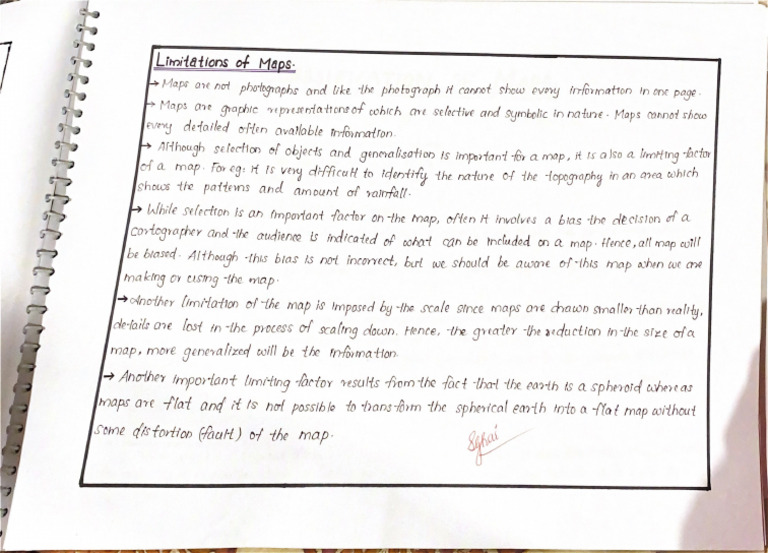 Limitations of Maps.
→ Maps are not photographs and like the photograph it cannot show every information in one page.
→ Maps are graphic representations of which are selective and symbolic in nature. Maps cannot show
every detailed often available information.
→ Although selection of objects and generalisation is important for a map, it is also a limiting factor
of a map. For eg: it is very difficult to identify the nature of the topography in an area which
shows the patterns and amount of rainfall.
→ While selection is an important factor on the map, often it involves a bias the decision of a
cartographer and the audience is indicated of what can be included on a map. Hence, all map will
be biased. Although this bias is not incorrect, but we should be aware of this map when we are
making or using the map.
→ Another limitation of the map is imposed by the scale since maps are drawn smaller than reality,
details are lost in the process of scaling down. Hence, the greater the reduction in the size of a
map, more generalized will be the information.
→ Another important limiting factor results from the fact that the earth is a spheroid whereas
maps are flat and it is not possible to transform the spherical earth into a flat map without
some distortion (fault) of the map.